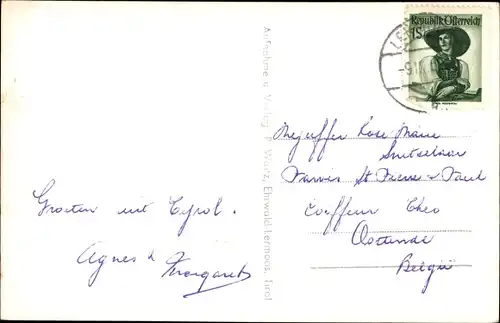 Republik Österreich
1S
Groeten uit Tyrol.
Agnes &
Margaret
Aufnahme u. Verlag P. Wurtz, Ehrwald-Lermoos, Tirol
Mejuffer Rose Marie
Parvis St Pierre & Paul
Coiffeur Theo
Oostende
België